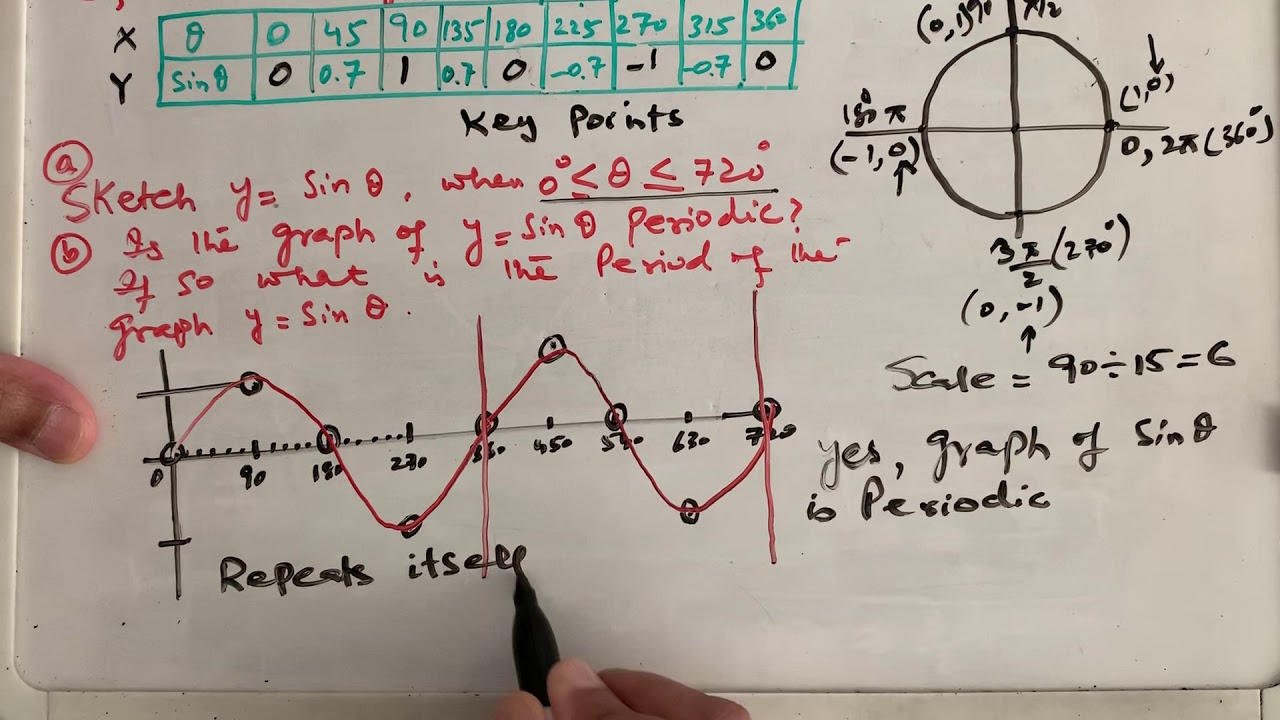 X θ 0 45 90 135 180 225 270 315 360
Y Sinθ 0 0.7 1 0.7 0 -0.7 -1 -0.7 0
Key Points
(0,1) 90 π/2
(1,0)
180° π
(-1,0)
0, 2π (360°)
3π/2 (270°)
(0,-1)
a
Sketch y = Sin θ, when 0° ≤ θ ≤ 720°
b Is the graph of y = Sin θ Periodic?
If so what is the Period of the
graph y = Sin θ.
Scale = 90 ÷ 15 = 6
0 90 180 270 360 450 540 630 720
yes, graph of Sin θ
is Periodic
Repeats itself